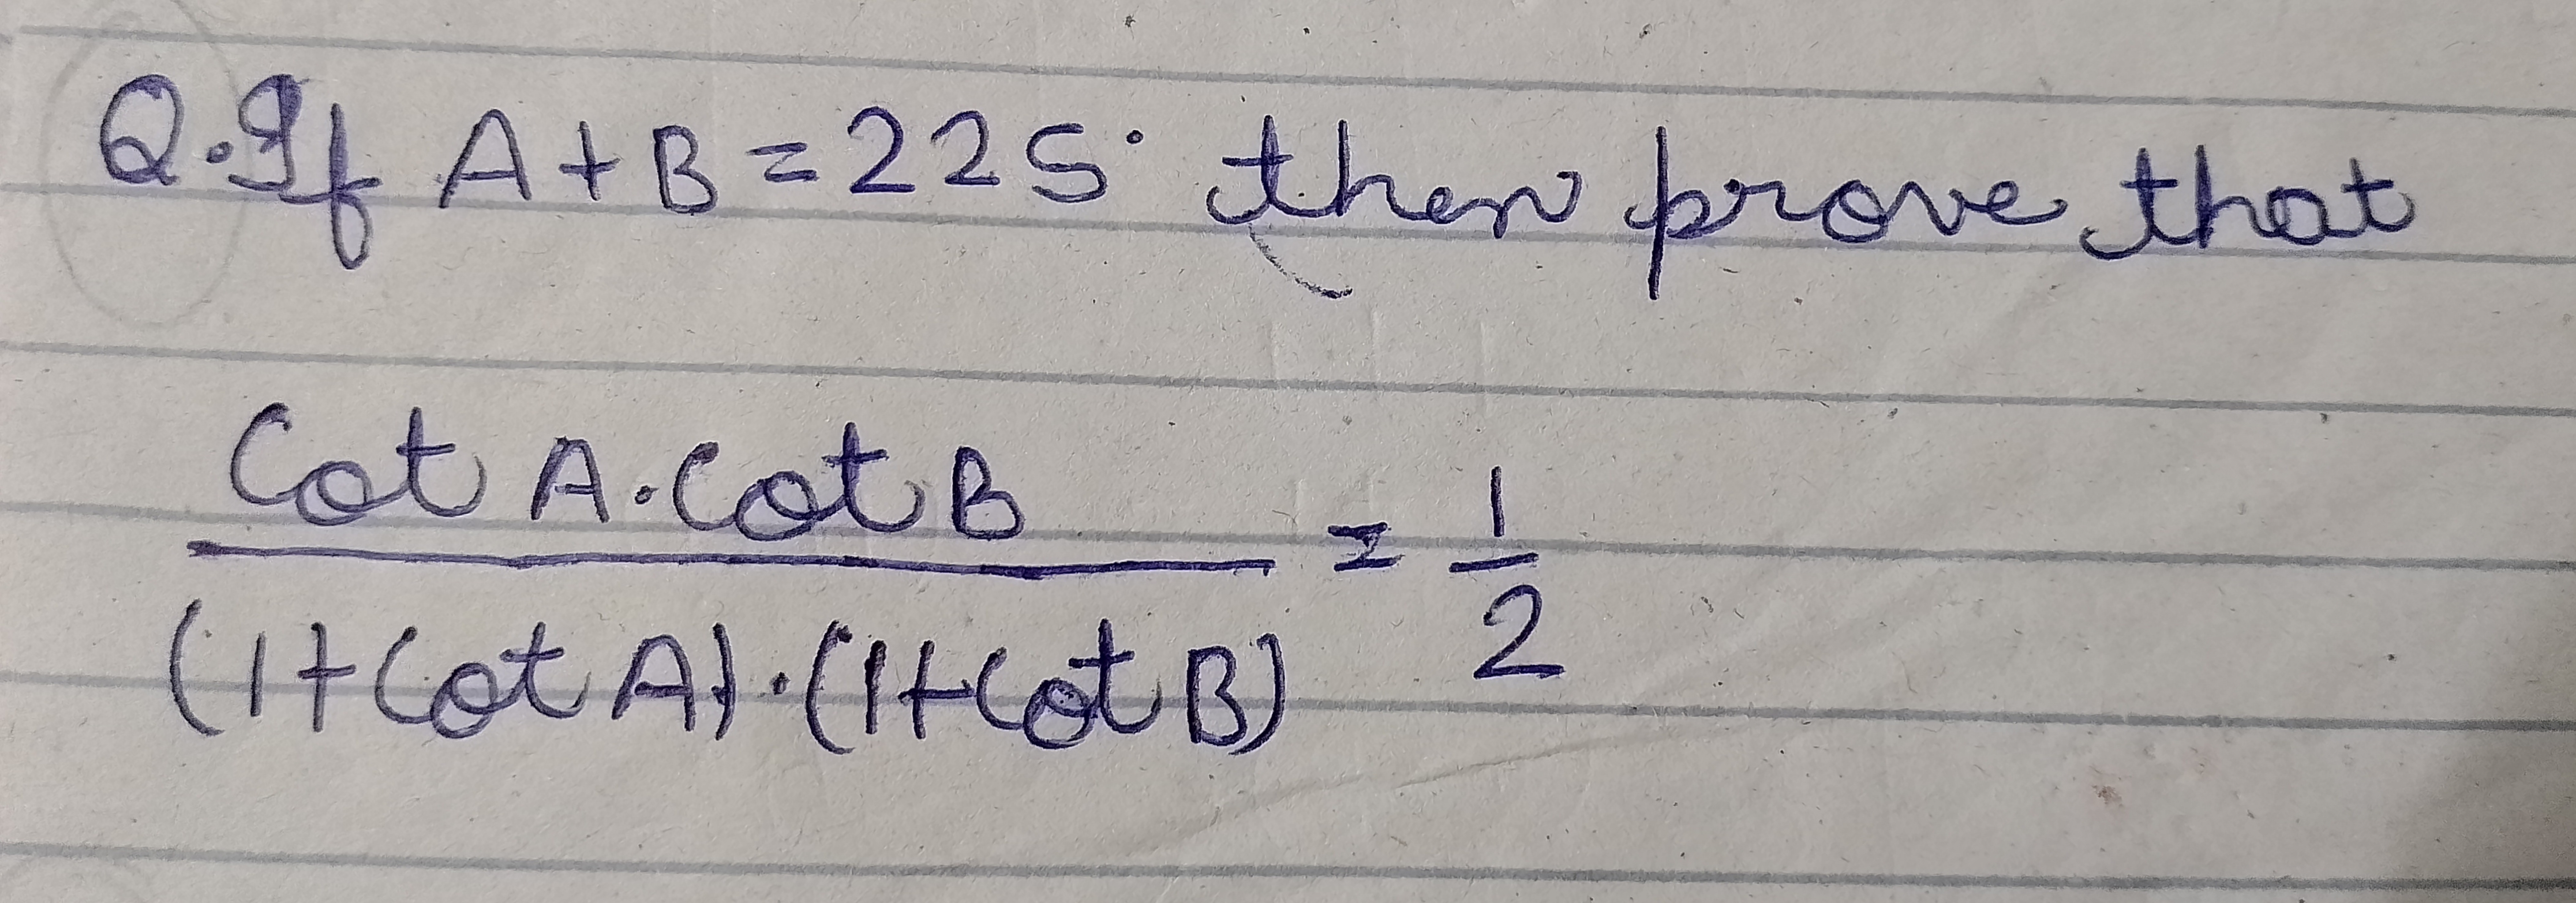 Q. If A + B = 225° then prove that
Cot A . Cot B
= 1/2
(1 + Cot A) . (1 + Cot B)